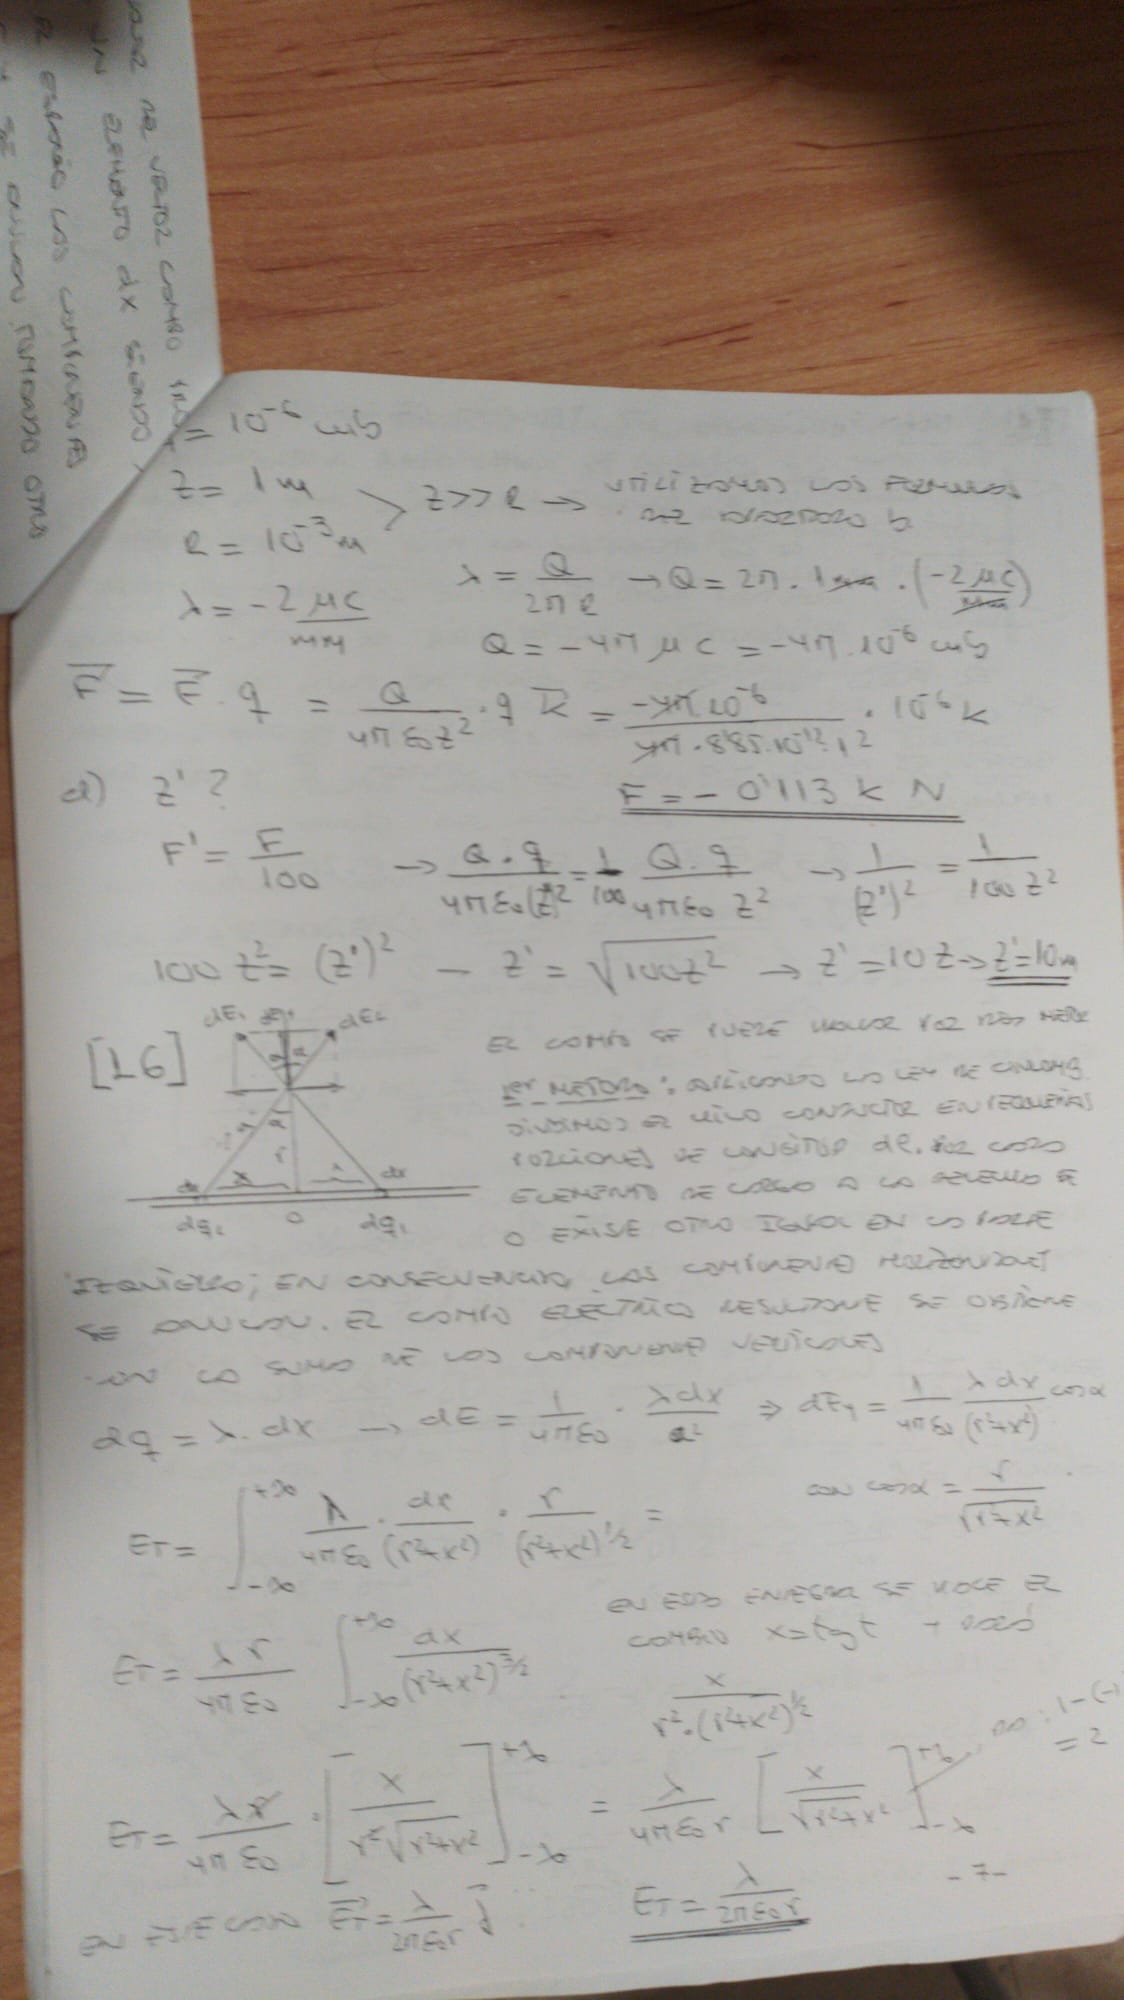 DEL VECTOR CAMPO
UN ELEMENTO dx SIENDO
COMPONENTES
TOMANDO OTRO
= 10⁻⁶ culb
Z = 1 m
R = 10⁻³ m
> Z >> R → UTILIZAMOS LAS FORMULAS
DEL APARTADO b
λ = -2 μC/mm
λ = Q/2πR → Q = 2π · 1mm · (-2 μC/mm)
Q = -4π μC = -4π · 10⁻⁶ culb
F⃗ = E⃗ · q = Q/4πε₀z² · q k⃗ = -4π10⁻⁶/4π · 8'85 · 10⁻¹² · 1² · 10⁻⁶ k
F = - 0'113 k N
d) Z' ?
F' = F/100 → Q · q/4πε₀(z')² = 1/100 Q · q/4πε₀ z² → 1/(z')² = 1/100 z²
100 z² = (z')² - z' = √100z² → z' = 10z → z' = 10m
[16]
dE₁ dE₂
α α
r
x x
dx dx
dq₁ O dq₁
EL CAMPO SE PUEDE HALLAR POR DOS
1er METODO: APLICANDO LA LEY DE COULOMB.
DIVIDIMOS EL HILO CONDUCTOR EN PEQUEÑAS
PORCIONES DE LONGITUD dl. POR CADA
ELEMENTO DE CARGA A LA DERECHA DE
O EXISTE OTRO IGUAL EN LA PARTE
IZQUIERDA; EN CONSECUENCIA, LAS COMPONENTES HORIZONTALES
SE ANULAN. EL CAMPO ELÉCTRICO RESULTANTE SE OBTIENE
CON LA SUMA DE LAS COMPONENTES VERTICALES
dq = λ · dx → dE = 1/4πε₀ · λdx/a² ⇒ dEy = 1/4πε₀ λdx/(r²+x²) cosα
ET = ∫₋∞⁺∞ λ/4πε₀ · dx/(r²+x²) · r/(r²+x²)^1/2 =
CON cosα = r/√r²+x²
ET = λ r/4πε₀ ∫₋∞⁺∞ dx/(r²+x²)^3/2
EN ESTA INTEGRAL SE HACE EL
CAMBIO x = tg t
x/r² · (r²+x²)^1/2
ET = λr/4πε₀ · [x/r²√r²+x²]₋∞⁺∞ = λ/4πε₀r [x/√r²+x²]₋∞⁺∞
1-(-1
= 2
EN ESTE CASO E⃗T = λ/2πε₀r j⃗
ET = λ/2πε₀r
- 7 -